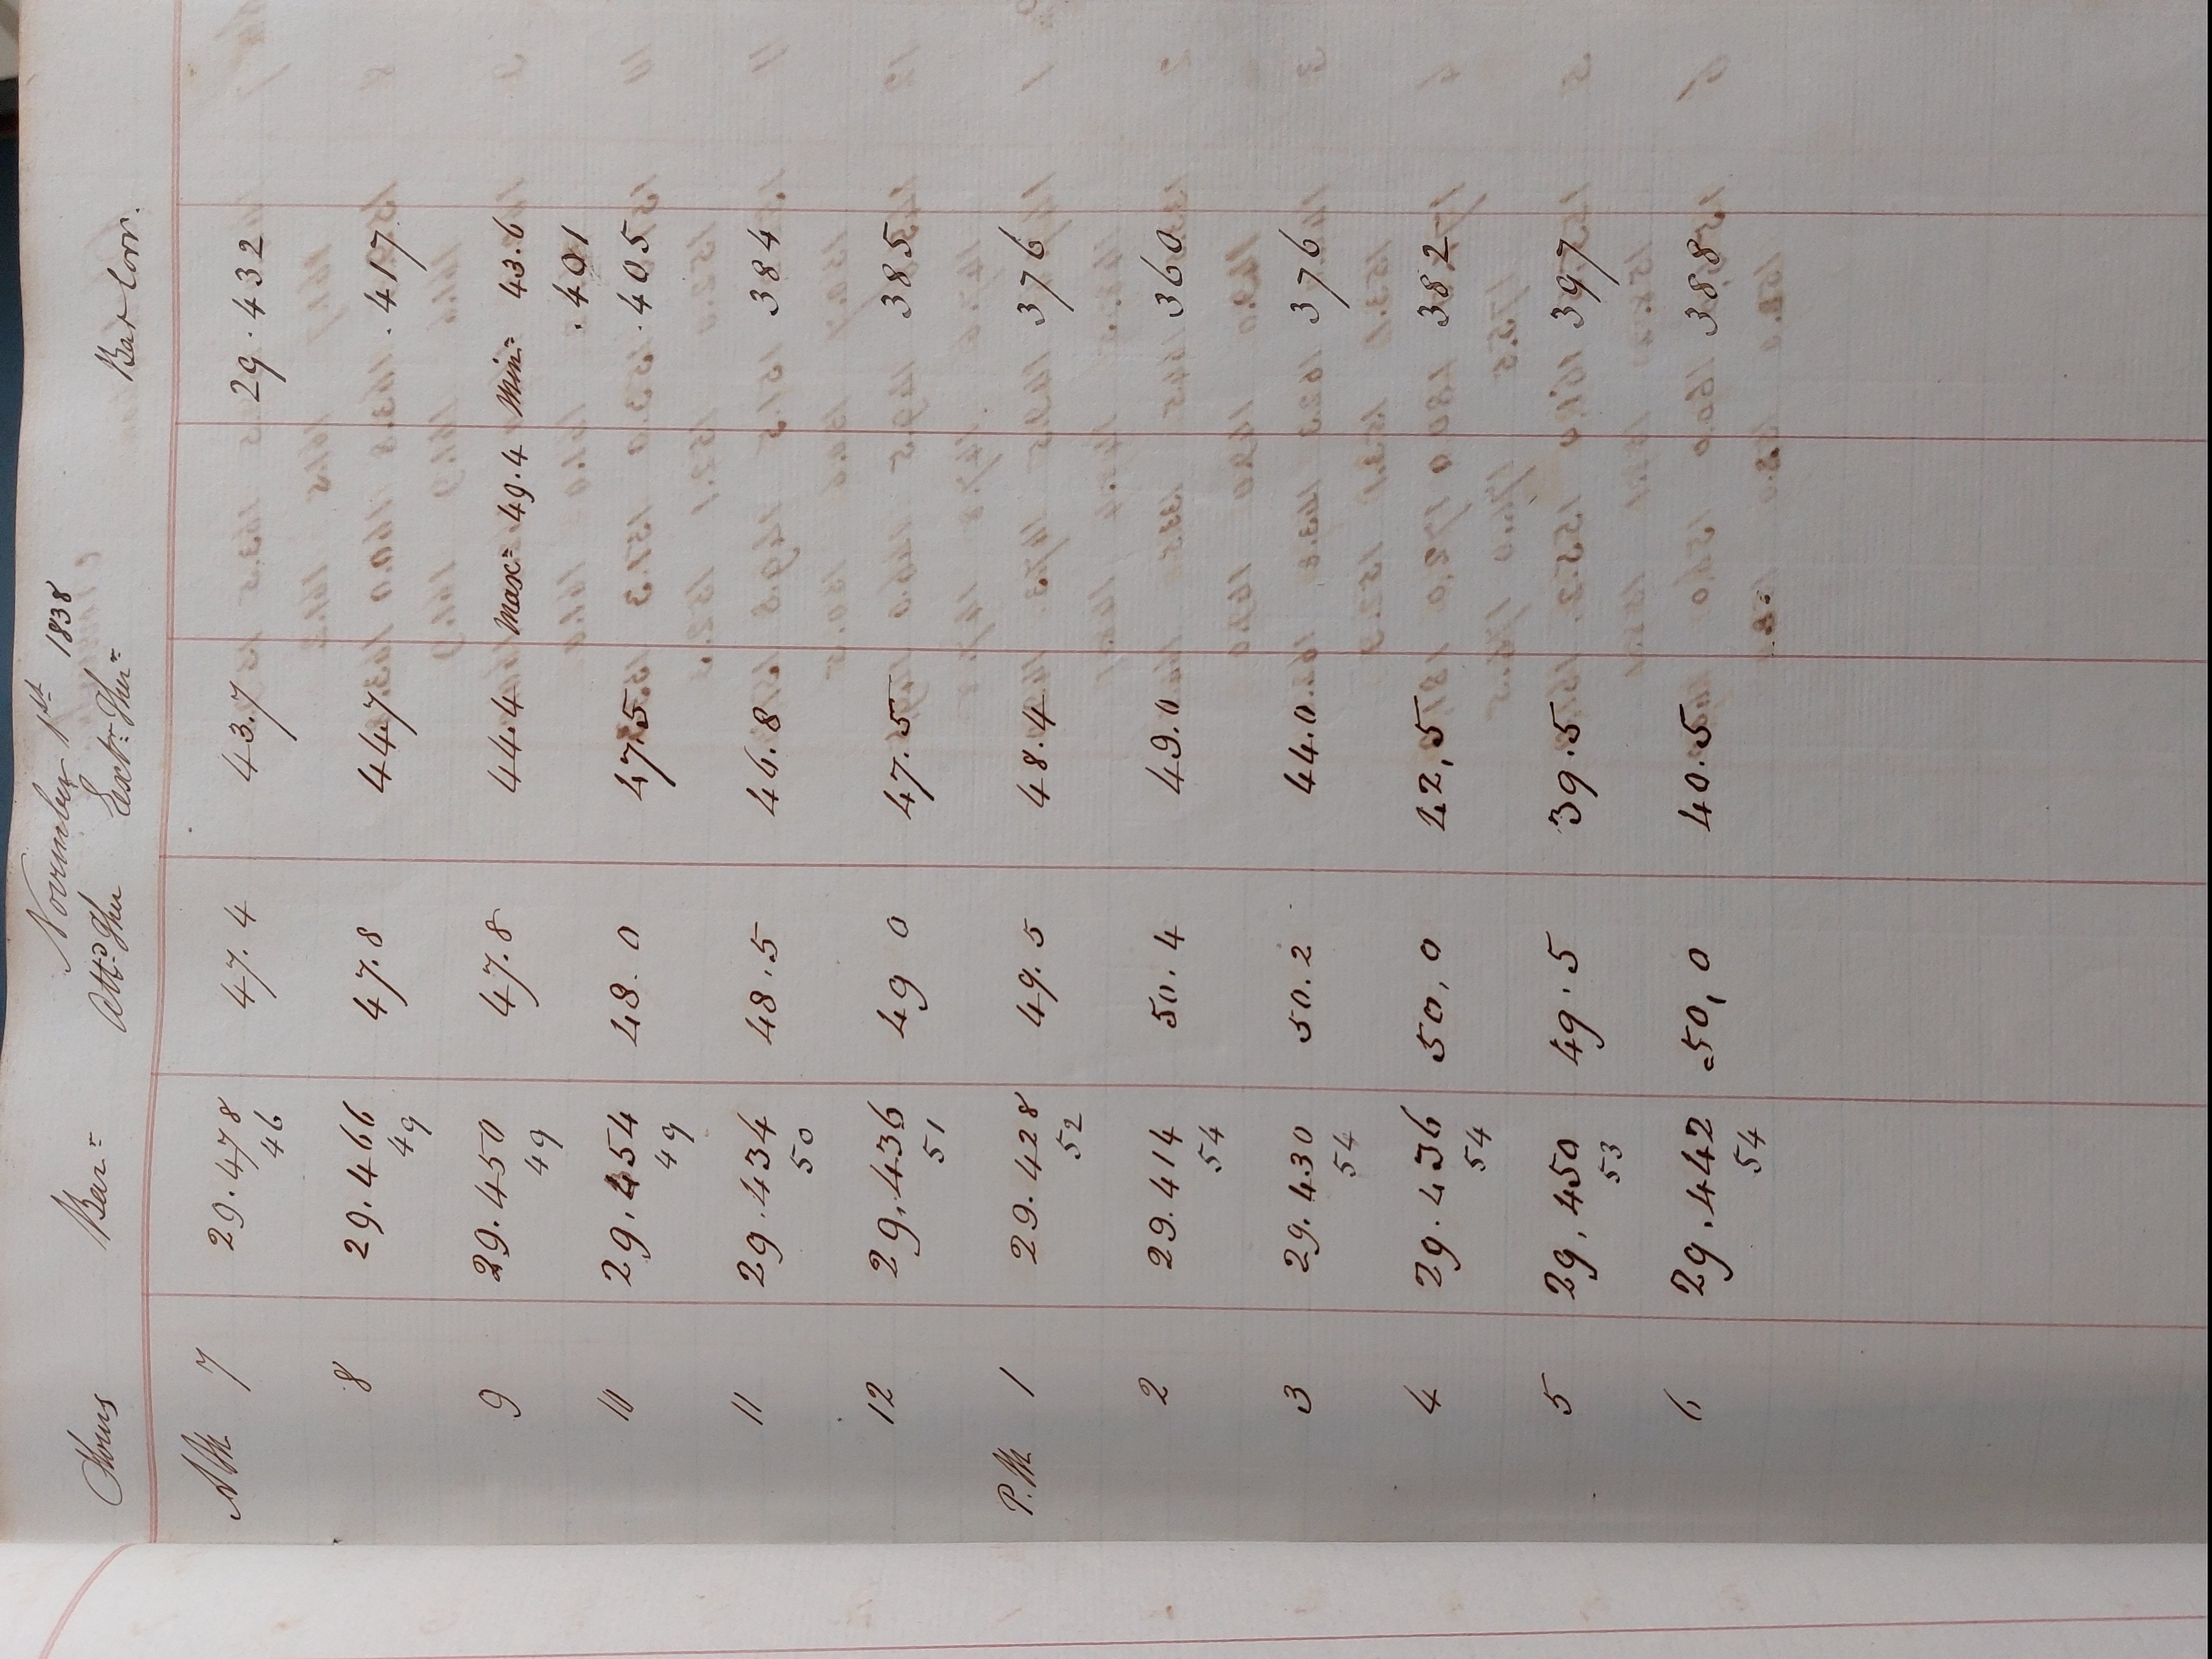 November 1st 1838
Hours Barr Attd Ther Extr Therr Bar Corr.
AM 7 29.478 47.4 43.7 29.432
46
8 29.466 47.8 44.7 .417
49
9 29.450 47.8 44.4 Max= 49.4 Min= 43.6
49 .401
10 29.454 48.0 47.5 .405
49
11 29.434 48.5 46.8 384
50
12 29.436 49 0 47.5 385
51
P.M 1 29.428 49.5 48.4 376
52
2 29.414 50.4 49.0 360
54
3 29.430 50.2 44.0 376
54
4 29.436 50,0 42,5 382
54
5 29,450 49.5 39.5 397
53
6 29.442 50,0 40.5 388
54